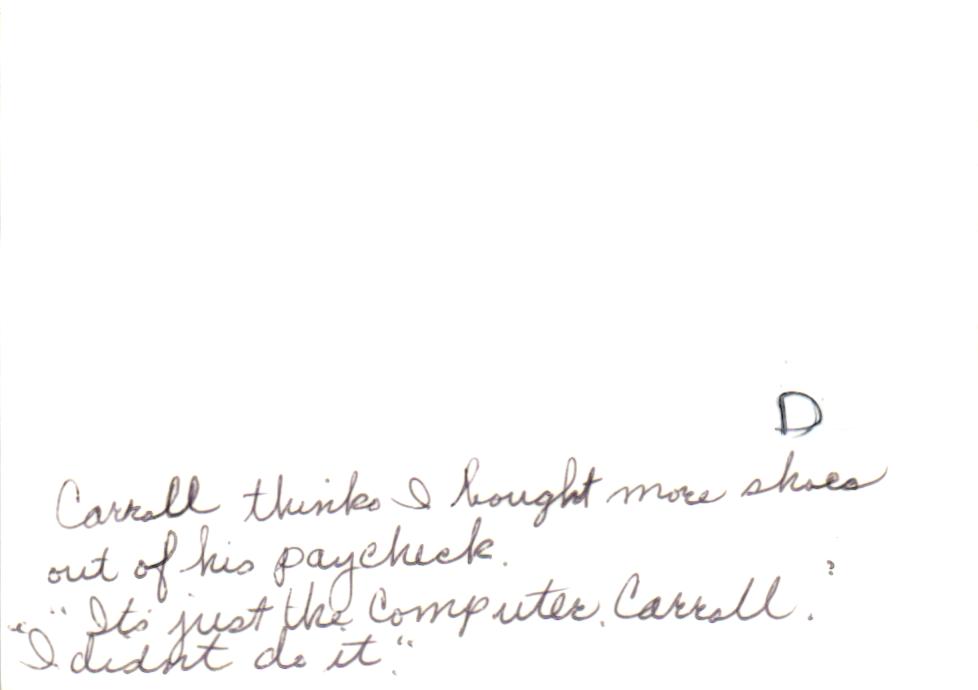 D
Carroll thinks I bought more shoes
out of his paycheck.
" Its just the Computer, Carroll. ?
"I didnt do it."